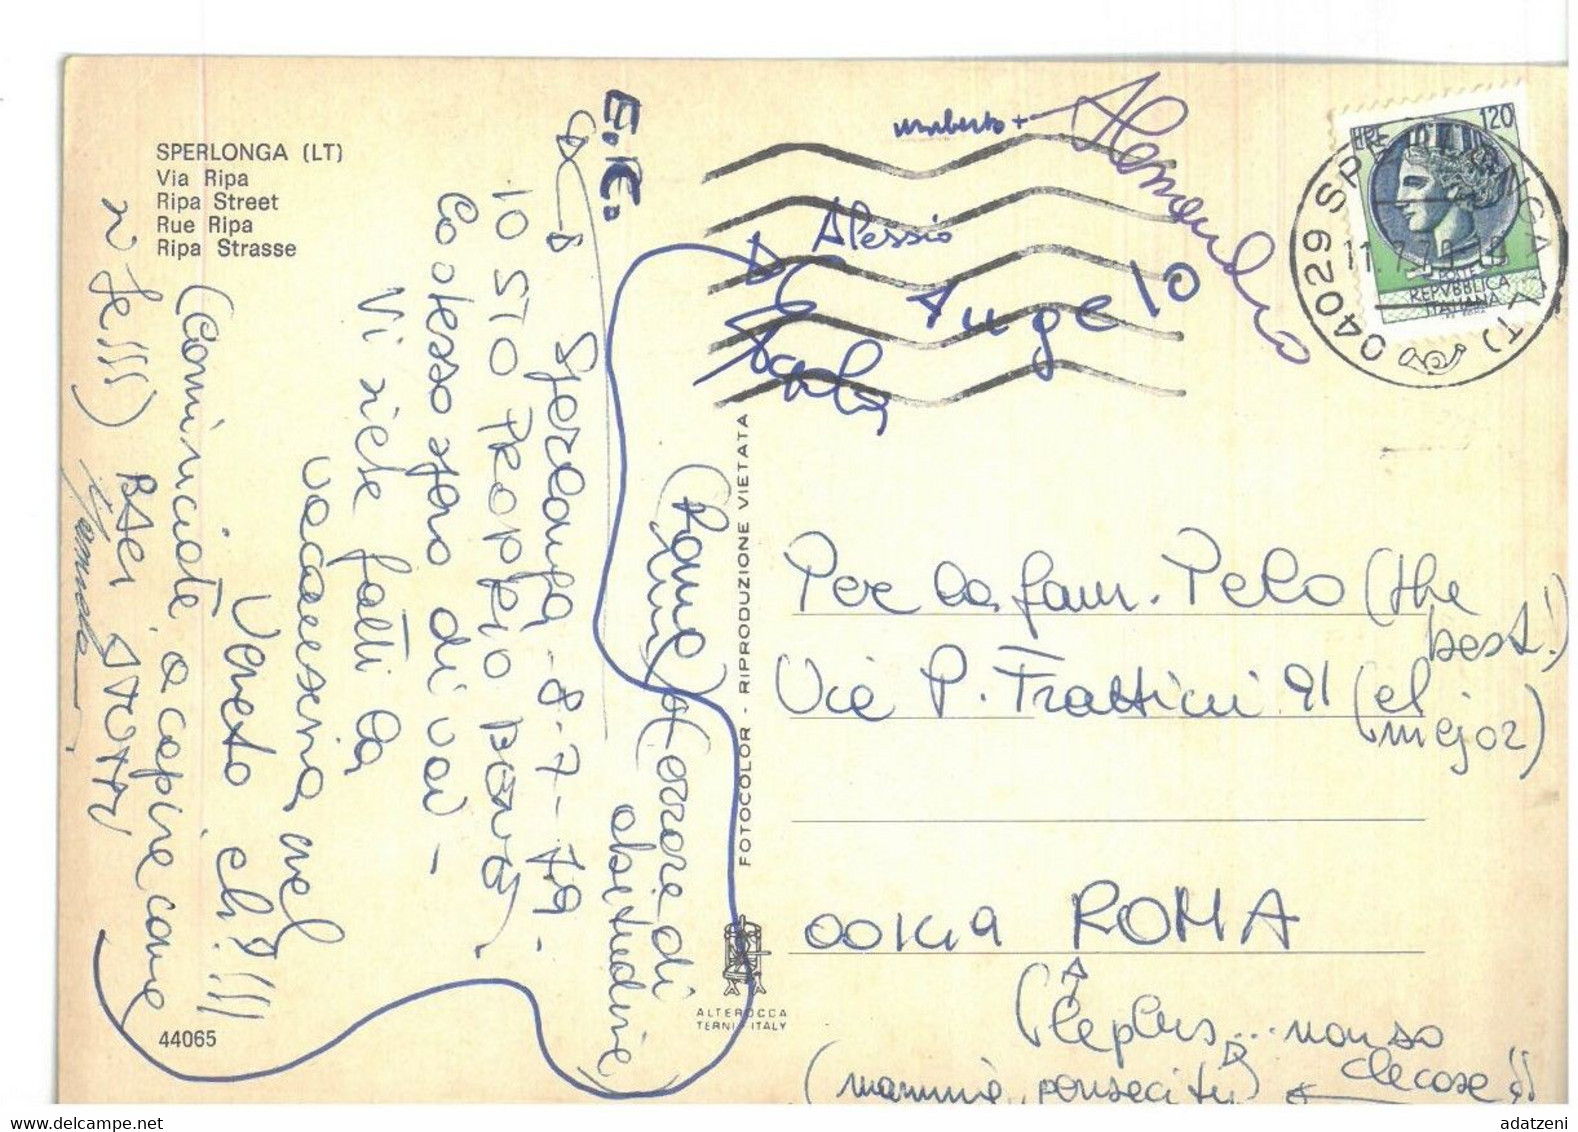 SPERLONGA (LT)
Via Ripa
Ripa Street
Rue Ripa
Ripa Strasse
E.K.
(Roma) (errore di
abitudine
Sperlonga - 8-7-79.
IO STO PROPPIO BENE,
lo stesso spero di voi -
Vi siete fatti la
vacanzina nel
Veneto eh?!!!
(Cominciate a capire come
BACI A TUTTI
44065
FOTOCOLOR - RIPRODUZIONE VIETATA
ALTEROCCA
TERNI - ITALY
umberto +
Alessandro
Alessio
Angelo
Paola
LIRE 120
POSTE
REPVBBLICA
ITALIANA
04029 SPERLONGA (LT)
11.7.79.10
Per la fam. Pelo (the
best!)
Via P. Frattini 91 (el
mejor)
00149 ROMA
(le plus... non so
che cosa!!
(mammà, pensaci tu)
adatzeni